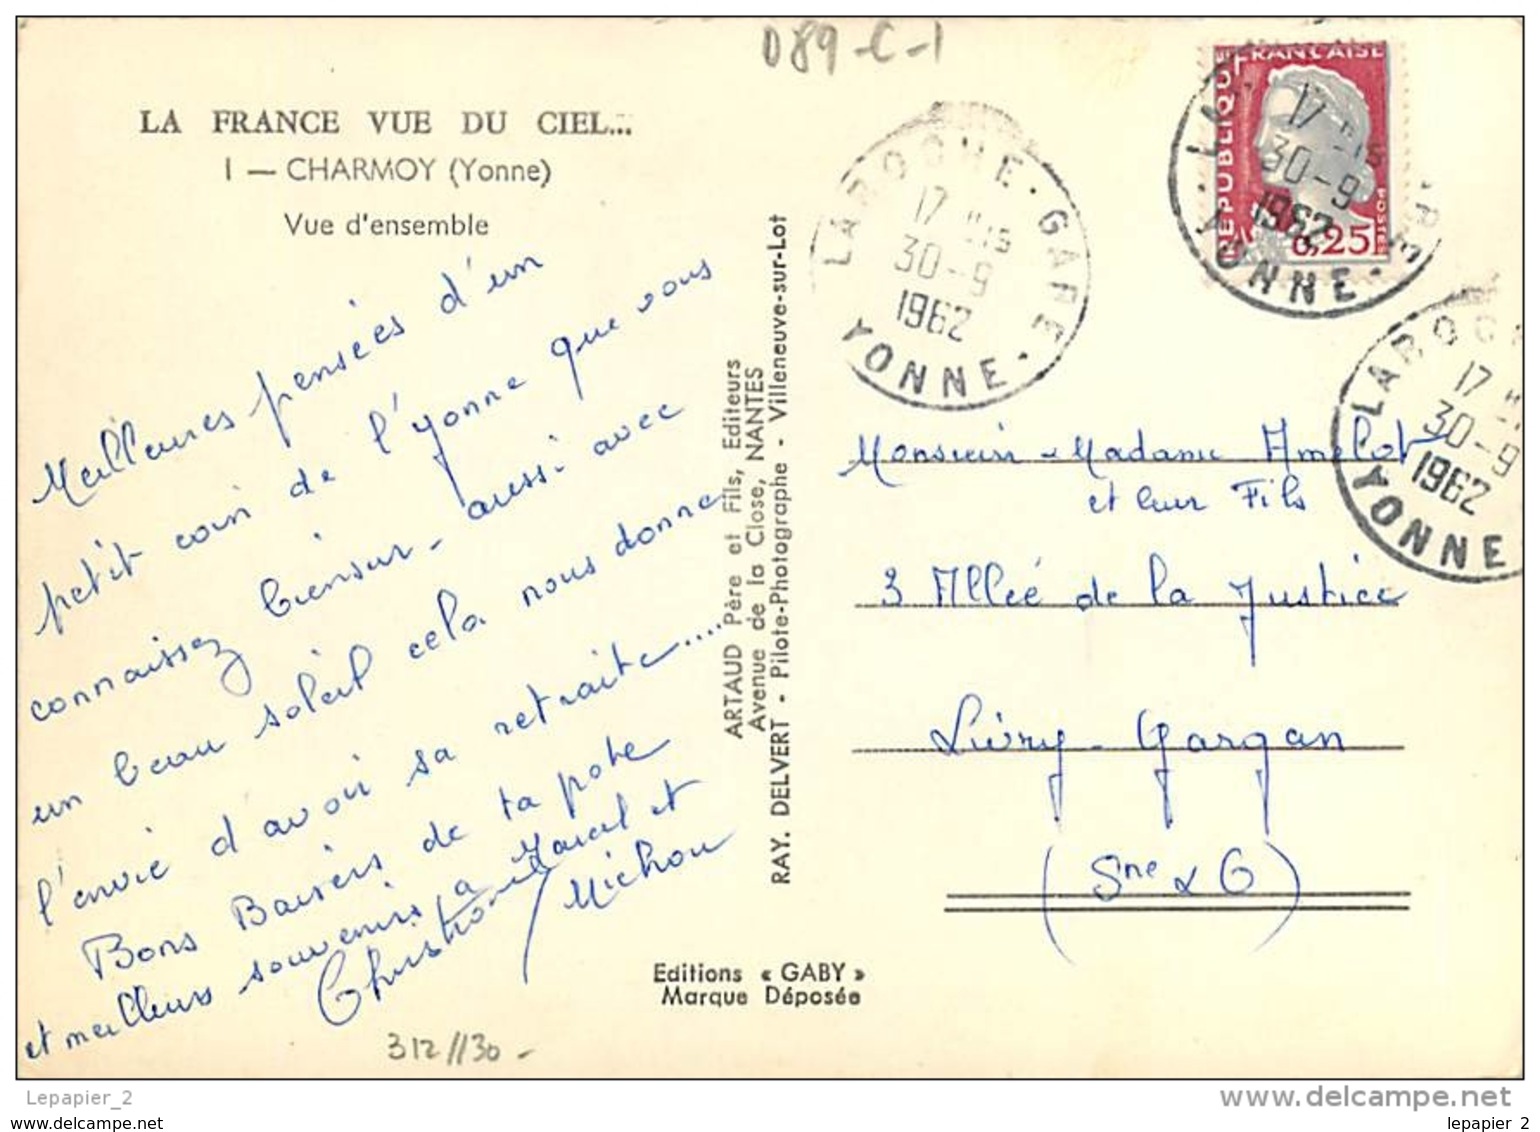 D89-C-1
LA FRANCE VUE DU CIEL...
1 — CHARMOY (Yonne)
Vue d'ensemble
Meilleures pensées d'un
petit coin de l'Yonne que vous
connaissez biensur - aussi avec
un beau soleil cela nous donne
l'envie d'avoir sa retraite.....
Bons Baisers de ta pote
et meilleurs souvenirs à Marcel et
Michou
Christiane
312//30-
ARTAUD Père et Fils, Editeurs
Avenue de la Close, NANTES
RAY. DELVERT - Pilote-Photographe - Villeneuve-sur-Lot
Editions « GABY »
Marque Déposée
LAROCHE-GARE
17 H 15
30-9
1962
YONNE
REPUBLIQUE FRANCAISE
POSTES
0,25
17 H 15
30-9
1962
YONNE
LAROCH
17 H
30-9
1962
YONNE
Monsieur - Madame Amelot
et leur Fils
3 Allée de la Justice
Livry-Gargan
(Sne & O)
Lepapier_2
www.delcampe.net
delcampe.net
lepapier_2